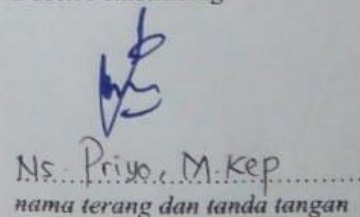 Ns. Priyo, M.Kep
nama terang dan tanda tangan